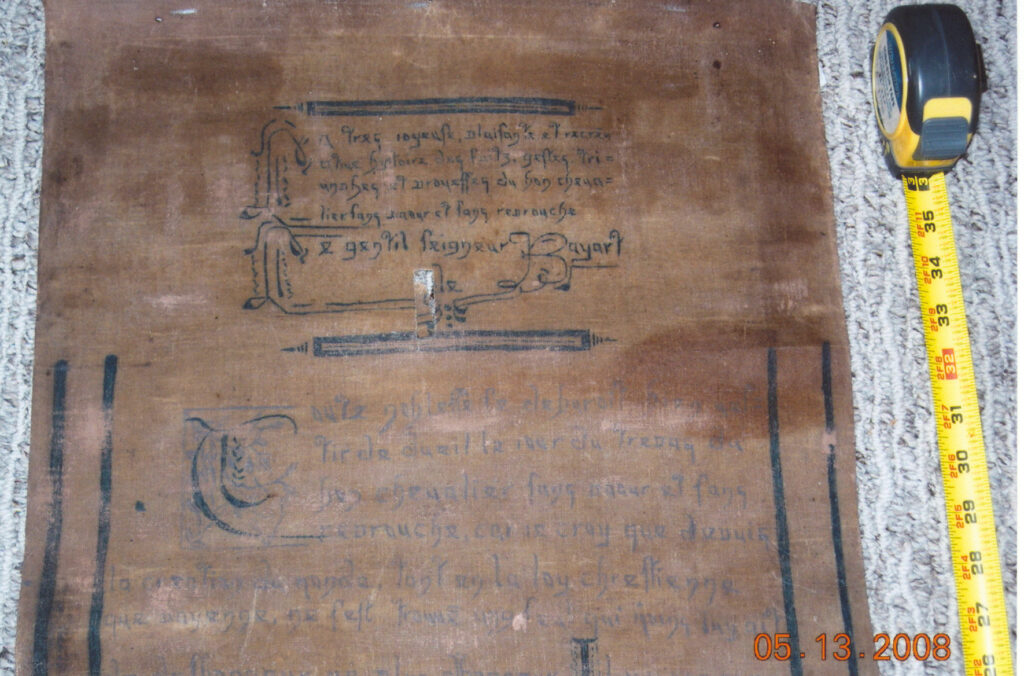 La tres ioyeuse, plaisante et recrea
tiue histoire des faitz, gestes, tri=
umphes et prouesses du bon cheua=
lier sans paour et sans reprouche
Le gentil seigneur Bayart
de
Toute noblesse se debvroit
tir de dueil le iour du trespas du
bon chevalier sans paour et sans
reprouche, car ie croy que depuis
la creation du monde, tant en la loy chrestienne
que payenne ne sest trouvé ung seul qui moins
35
2F10
34
2F9
33
2F8
32
2F7
31
2F6
30
2F5
29
2F4
28
2F3
27
05.13.2008